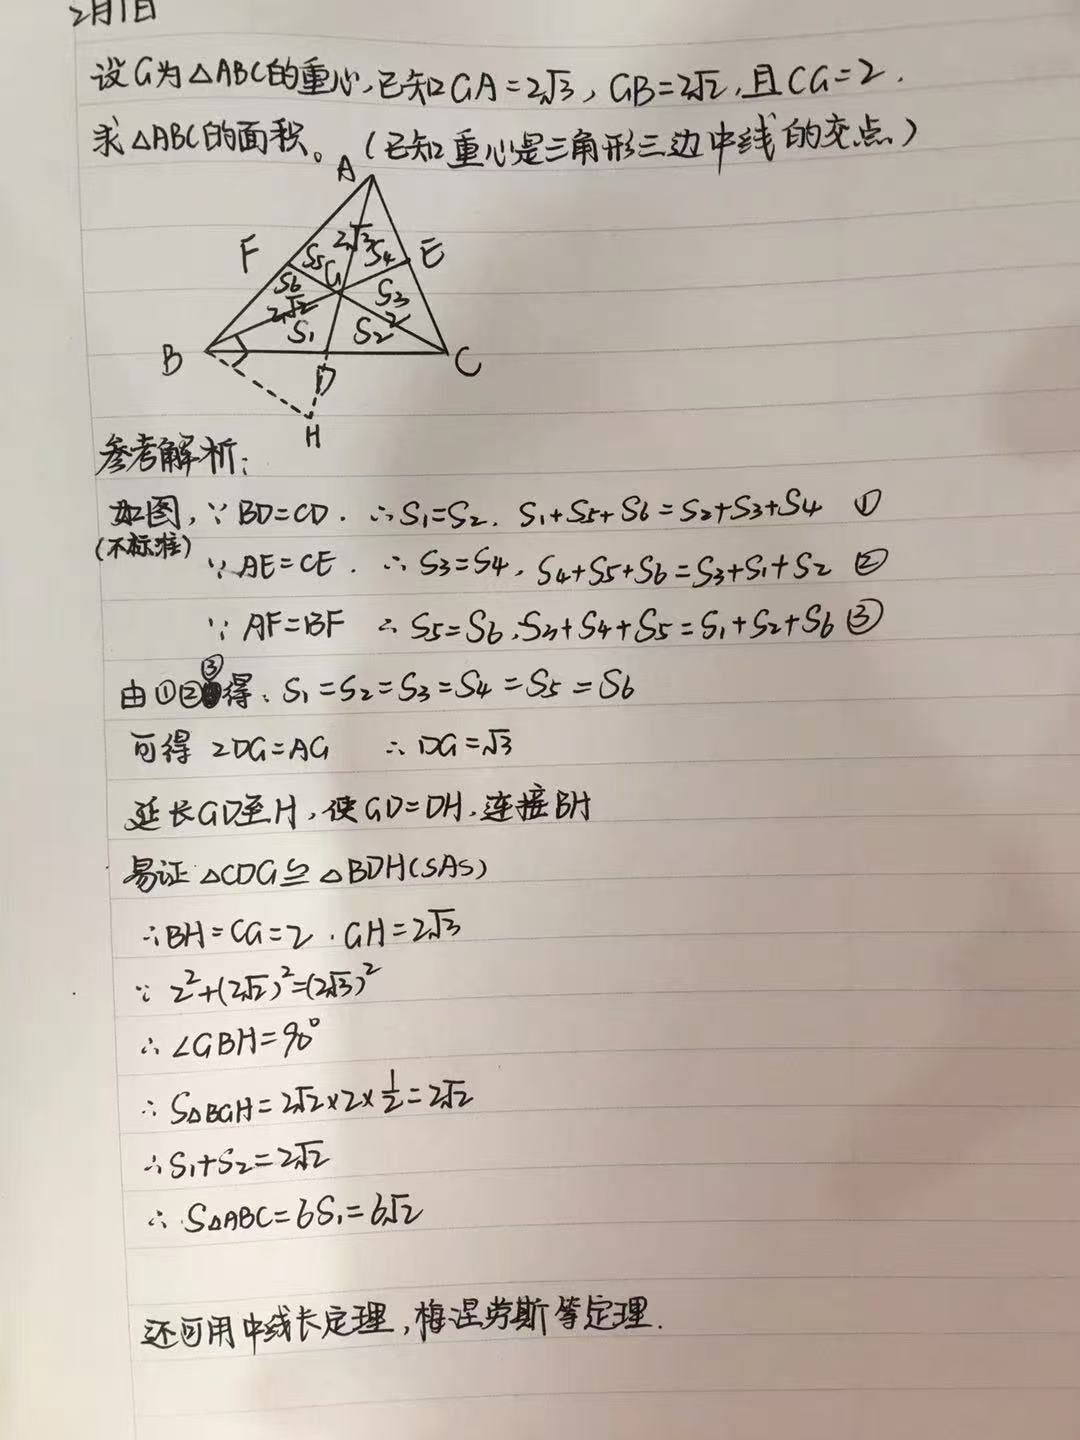 2月1日
设G为△ABC的重心,已知GA=2√3, GB=2√2,且CG=2.
求△ABC的面积。(已知重心是三角形三边中线的交点)
A
F
S5
2√3
S4
E
S6
G
S3
2√2
S1
S2
2
B
D
C
H
参考解析:
如图,∵BD=CD. ∴S1=S2. S1+S5+S6=S2+S3+S4 ①
(不标准)
∵AE=CE. ∴S3=S4, S4+S5+S6=S3+S1+S2 ②
∵AF=BF ∴S5=S6.S3+S4+S5=S1+S2+S6 ③
由①②③得:S1=S2=S3=S4=S5=S6
可得 2DG=AG ∴DG=√3
延长GD至H,使GD=DH.连接BH
易证△CDG≌△BDH(SAS)
∴BH=CG=2.GH=2√3
∵2²+(2√2)²=(2√3)²
∴∠GBH=90°
∴S△BGH=2√2×2×1/2=2√2
∴S1+S2=2√2
∴S△ABC=6S1=6√2
还可用中线长定理,梅涅劳斯等定理.